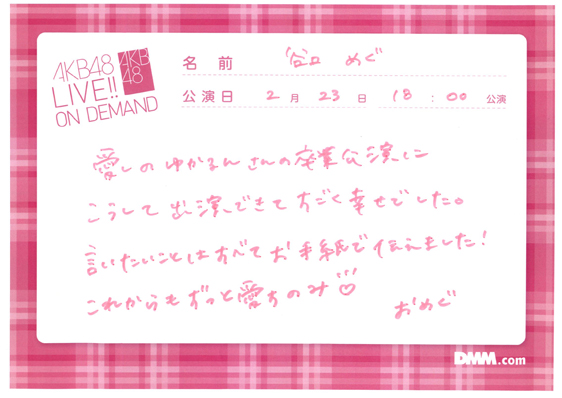 AKB48
LIVE!!
ON DEMAND
AKB
48
名前 谷口 めぐ
公演日 2月23日 18:00公演
愛しのゆかるんさんの卒業公演に
こうして出演できてすごく幸せでした。
言いたいことはすべてお手紙で伝えました!
これからもずっと愛すのみ♡
おめぐ
DMM.com